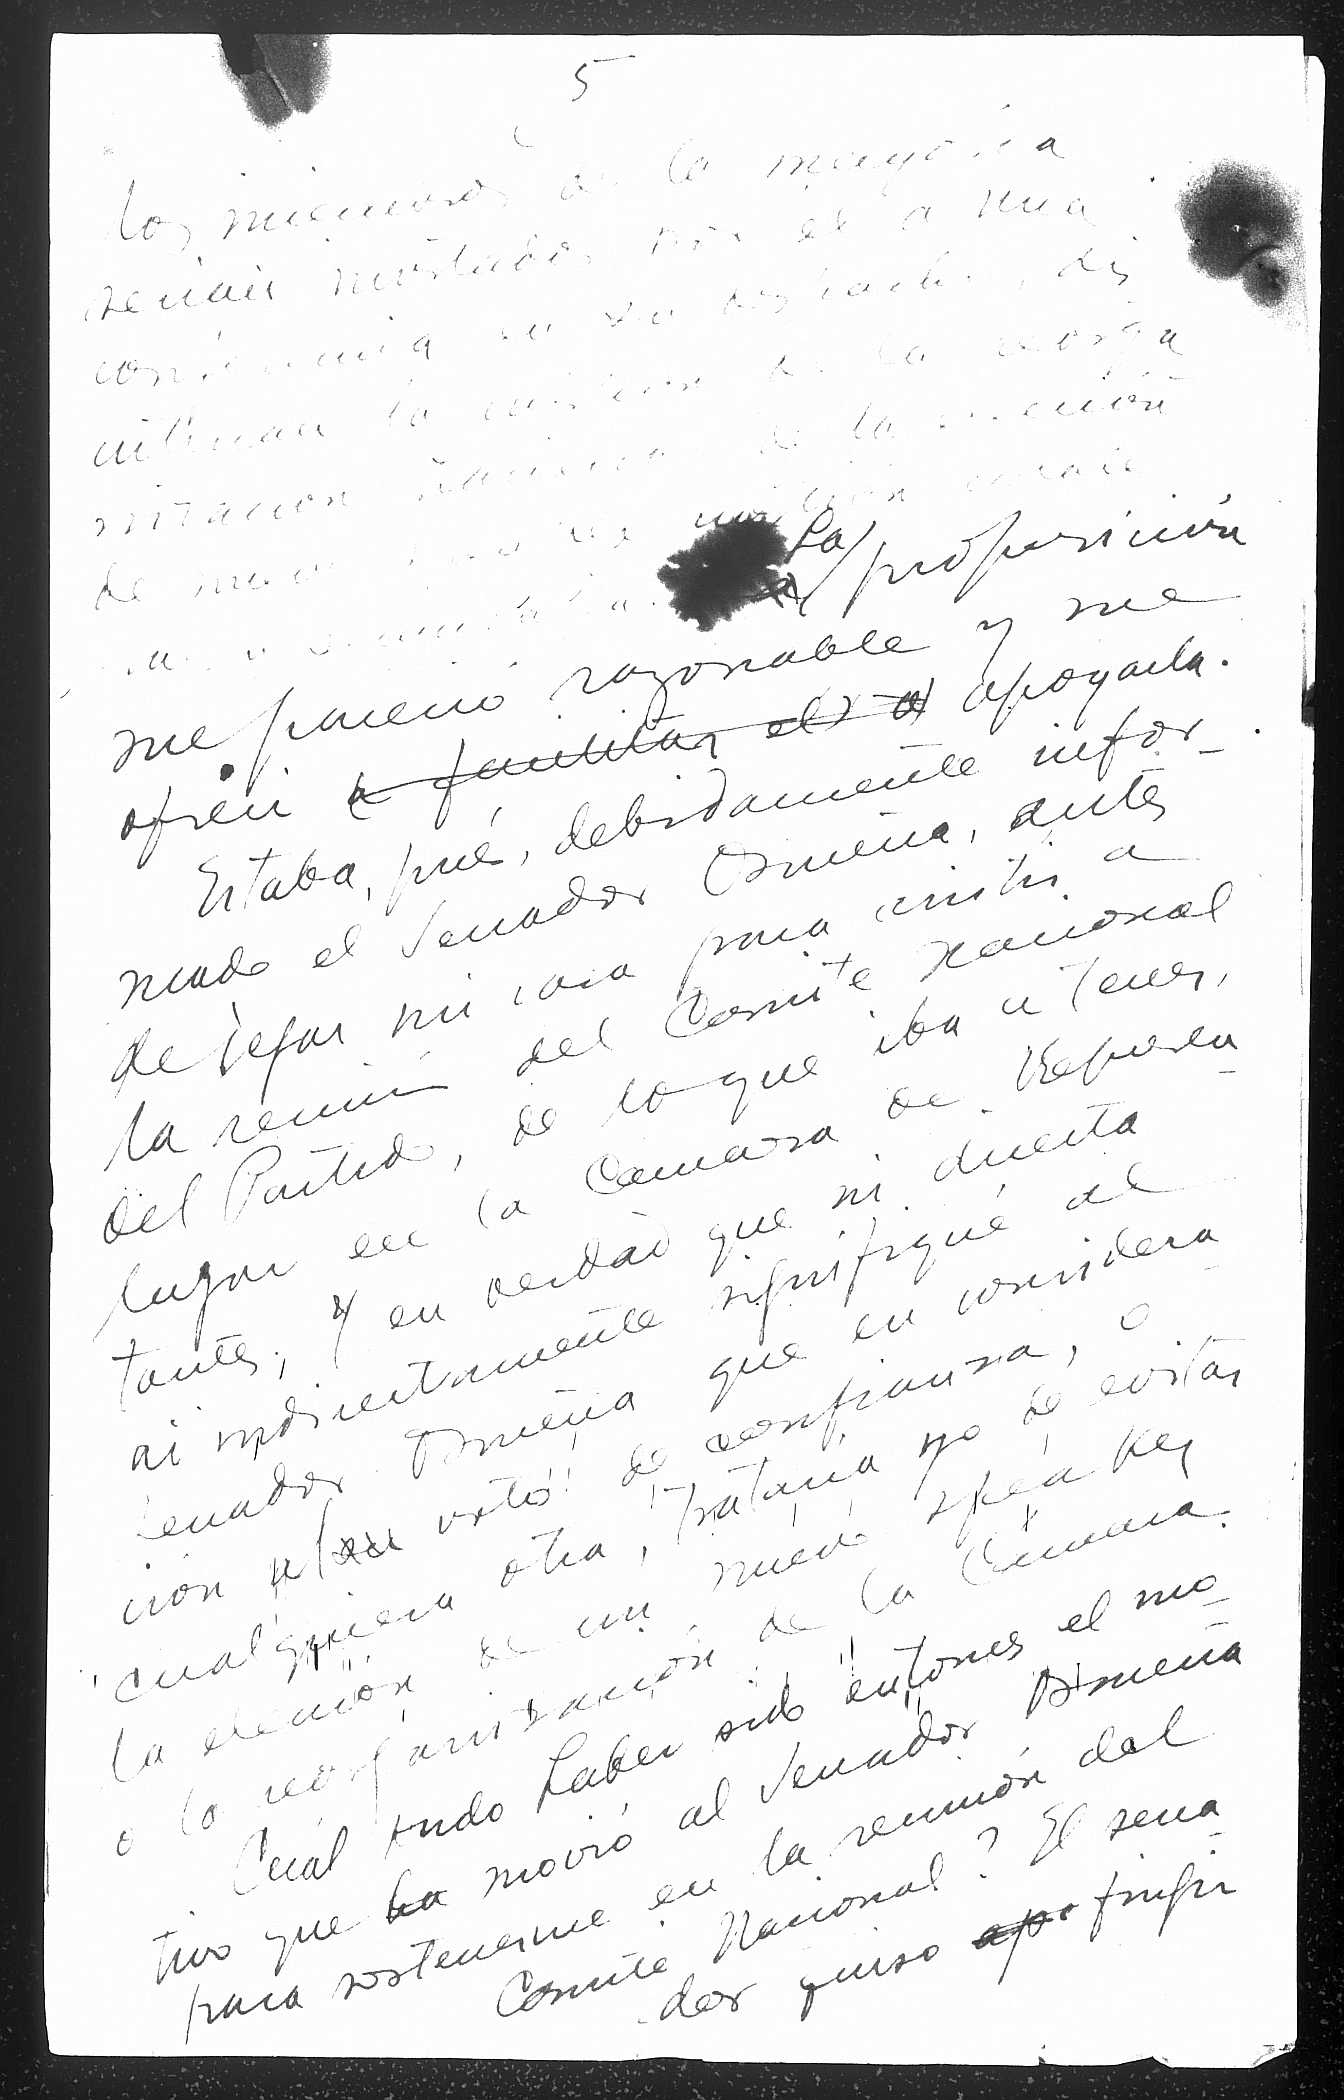 5
los miembros de la mayoría
serían invitados por él a una
conferencia en su despacho, dis
cutirían la cuestión de la reorga
nización
de nuevo
La proposición
me pareció razonable y me
ofrecí a facilitar el a apoyarla.
Estaba, pué, debidamente infor-
mado el Senador Osmeña, antes
de dejar mi casa para asistir a
la reunión del Comité Nacional
del Partido, de lo que iba a tener
lugar en la Cámara de Represen-
tantes, y en verdad que ni directa
ni indirectamente signifiqué al
Senador Osmeña que en considera-
ción al voto de confianza, o
cualquiera otra, trataría yo de evitar
la elección de un nuevo speaker
o la reorganización de la Cámara.
Cuál pudo haber sido entonces el mo-
tivo que ha movió al Senador Osmeña
para sostenerme en la reunión del
Comité Nacional? El sena-
dor quiso apo fingir